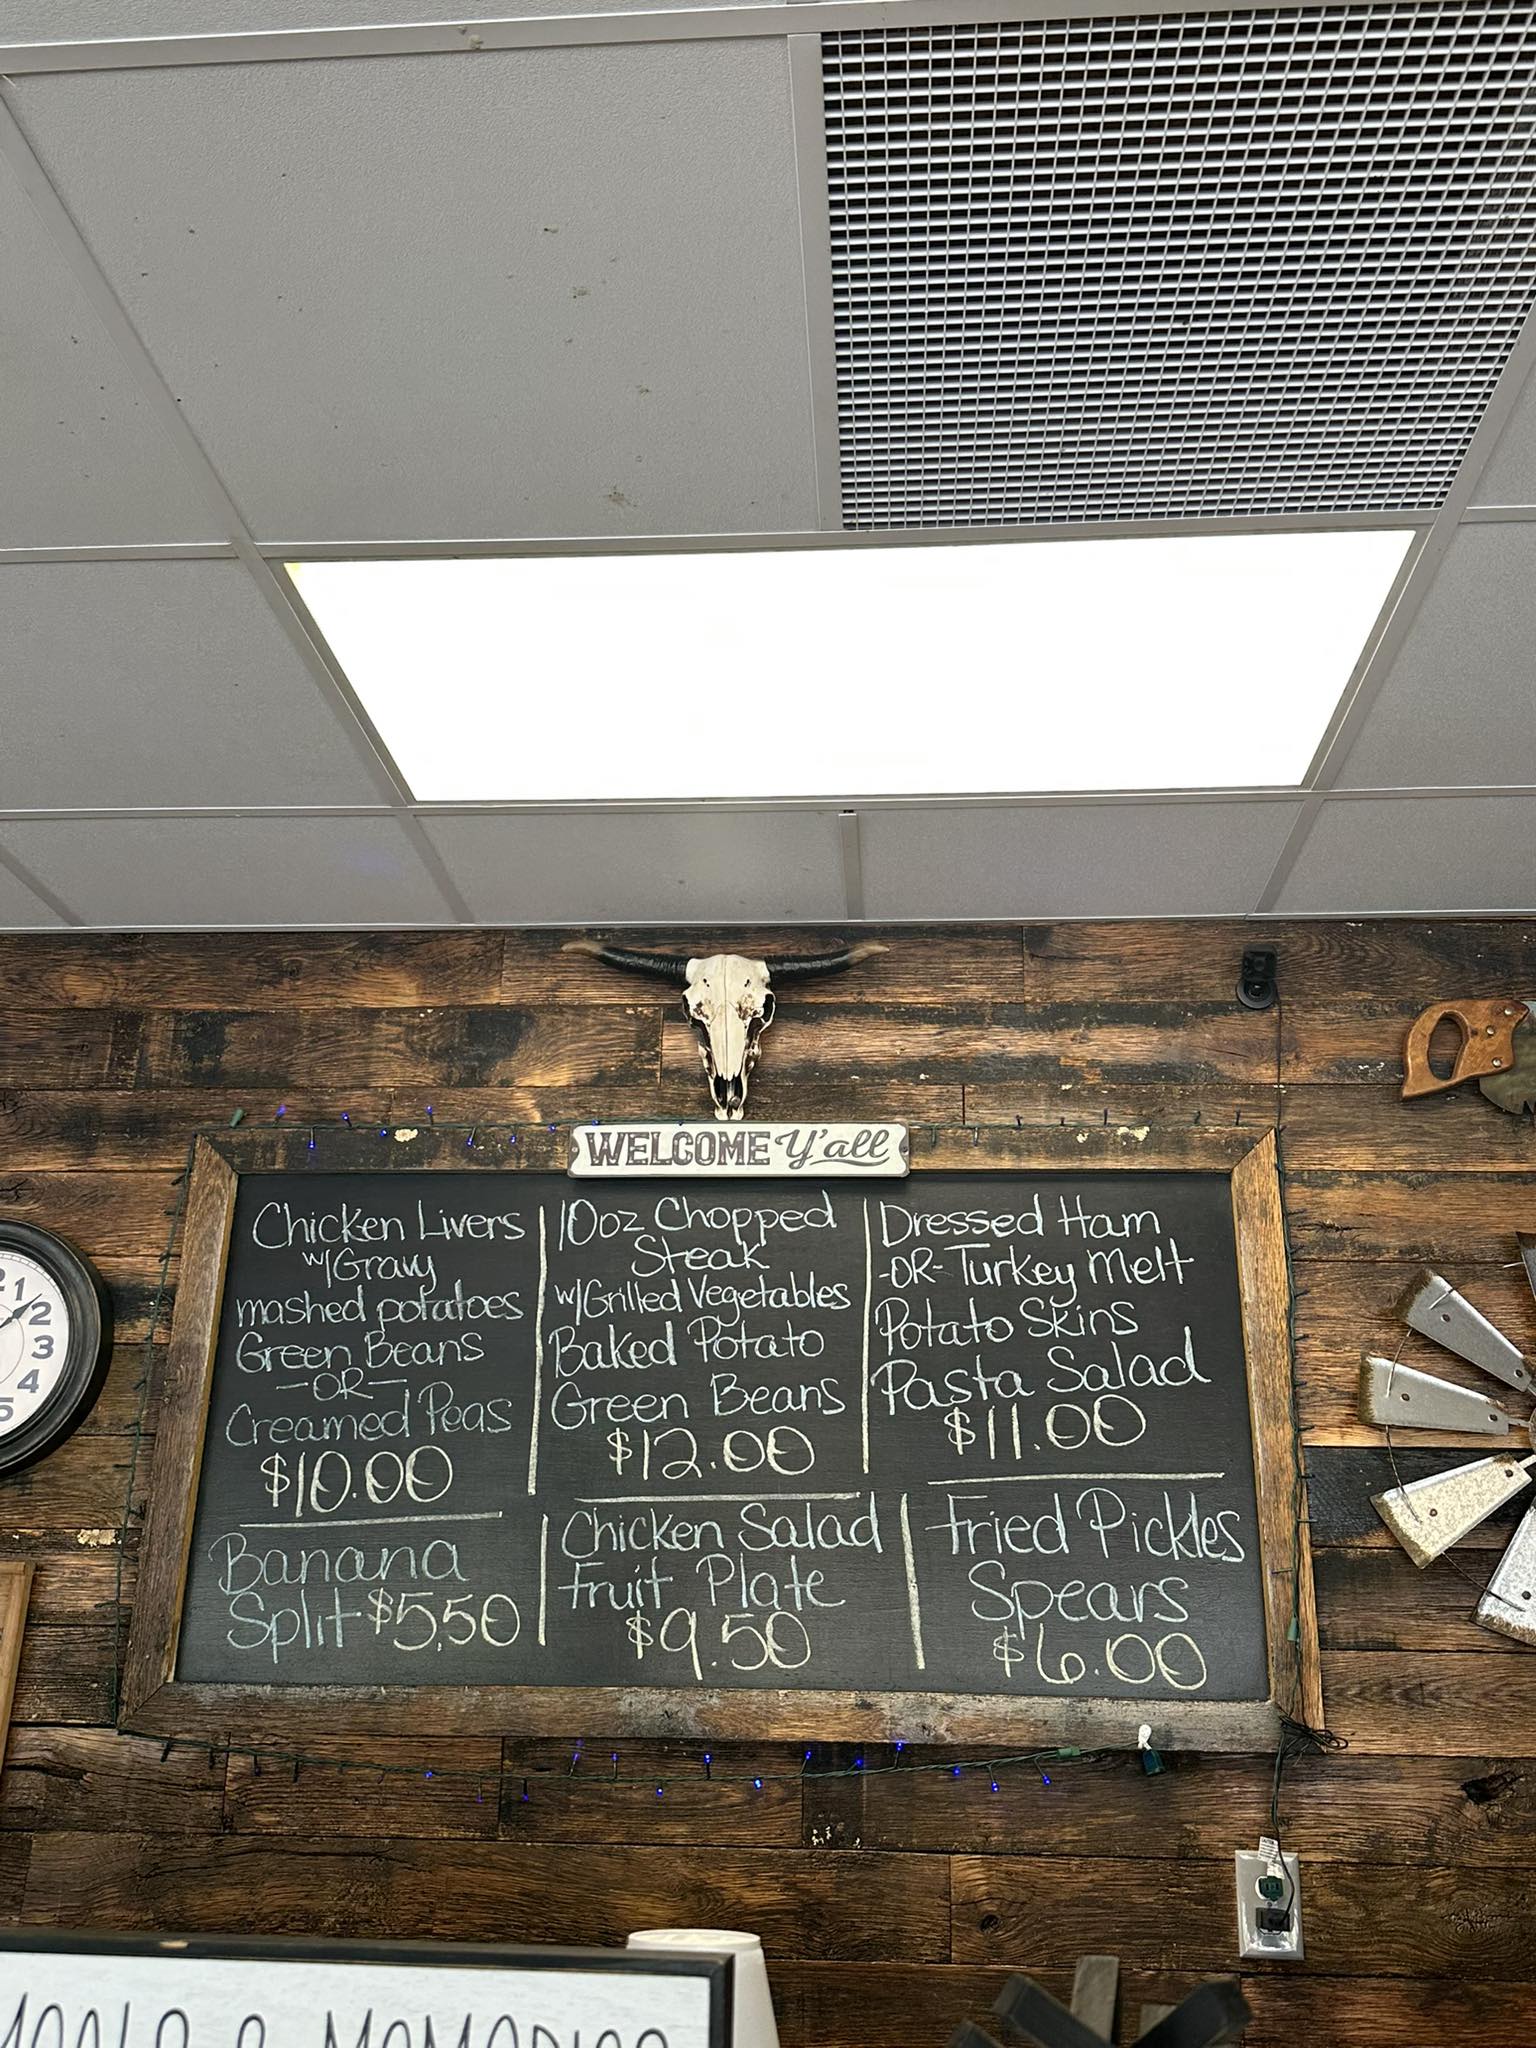 WELCOME Y'all
Chicken Livers
w/Gravy
mashed potatoes
Green Beans
-OR-
Creamed Peas
$10.00
10oz Chopped
Steak
w/Grilled Vegetables
Baked Potato
Green Beans
$12.00
Dressed Ham
-OR- Turkey Melt
Potato Skins
Pasta Salad
$11.00
Banana
Split $5.50
Chicken Salad
Fruit Plate
$9.50
Fried Pickles
Spears
$6.00
1
2
3
4
5